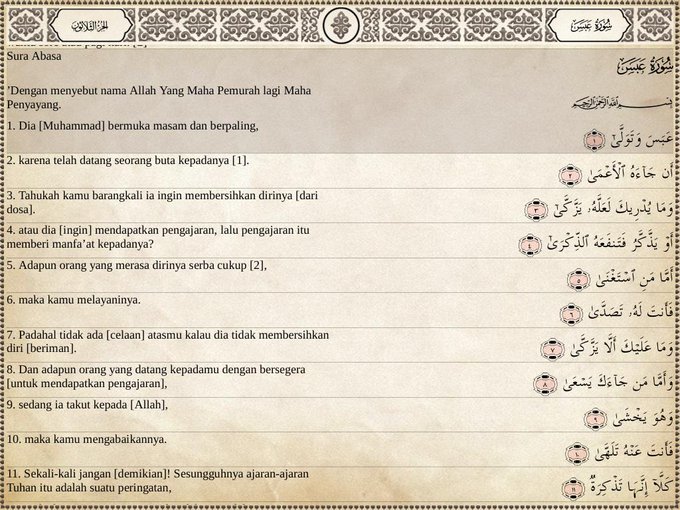 الجزء الثلاثون
سورة عبس
Sura Abasa
سورة عبس
'Dengan menyebut nama Allah Yang Maha Pemurah lagi Maha
Penyayang.
بسم الله الرحمن الرحيم
1. Dia [Muhammad] bermuka masam dan berpaling,
عَبَسَ وَتَوَلَّىٰٓ ١
2. karena telah datang seorang buta kepadanya [1].
أَن جَآءَهُ ٱلْأَعْمَىٰ ٢
3. Tahukah kamu barangkali ia ingin membersihkan dirinya [dari
dosa].
وَمَا يُدْرِيكَ لَعَلَّهُۥ يَزَّكَّىٰٓ ٣
4. atau dia [ingin] mendapatkan pengajaran, lalu pengajaran itu
memberi manfa'at kepadanya?
أَوْ يَذَّكَّرُ فَتَنفَعَهُ ٱلذِّكْرَىٰٓ ٤
5. Adapun orang yang merasa dirinya serba cukup [2],
أَمَّا مَنِ ٱسْتَغْنَىٰ ٥
6. maka kamu melayaninya.
فَأَنتَ لَهُۥ تَصَدَّىٰ ٦
7. Padahal tidak ada [celaan] atasmu kalau dia tidak membersihkan
diri [beriman].
وَمَا عَلَيْكَ أَلَّا يَزَّكَّىٰ ٧
8. Dan adapun orang yang datang kepadamu dengan bersegera
[untuk mendapatkan pengajaran],
وَأَمَّا مَن جَآءَكَ يَسْعَىٰ ٨
9. sedang ia takut kepada [Allah],
وَهُوَ يَخْشَىٰ ٩
10. maka kamu mengabaikannya.
فَأَنتَ عَنْهُ تَلَهَّىٰ ١٠
11. Sekali-kali jangan [demikian]! Sesungguhnya ajaran-ajaran
Tuhan itu adalah suatu peringatan,
كَلَّآ إِنَّهَا تَذْكِرَةٌ ١١